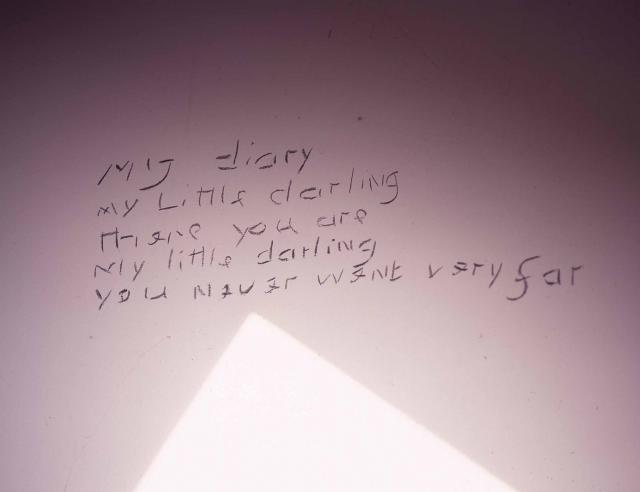 My diary
My Little darling
There you are
My little darling
you never went very far